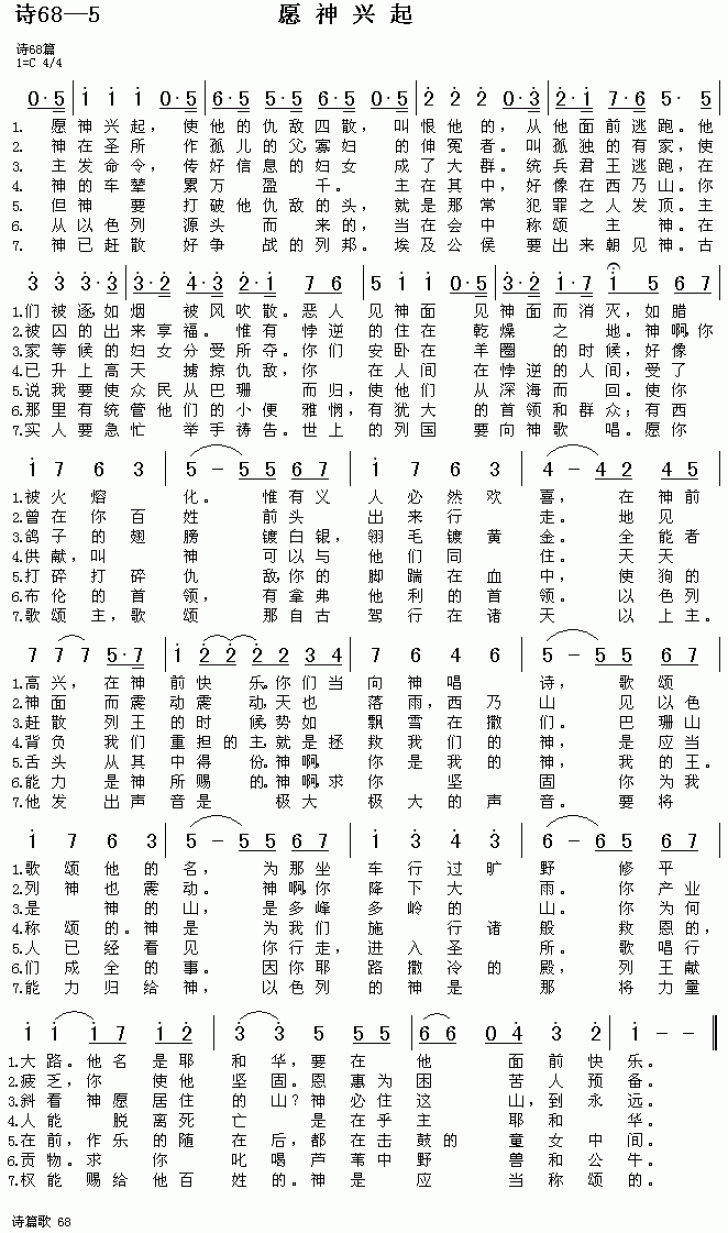 诗68—5 愿 神 兴 起
诗68篇
1=C 4/4
0·5 | 1 1 1 0·5 | 6·5 5·5 6·5 0·5 | 2 2 2 0·3 | 2·1 7·6 5· 5 |
1. 愿神兴起，使他的仇敌四散，叫恨他的，从他面前逃跑。他
2. 神在圣所作孤儿的父，寡妇的伸冤者。叫孤独的有家，使
3. 主发命令，传好信息的妇女成了大群。统兵君王逃跑，在
4. 神的车辇累万盈千。主在其中，好像在西乃山。你
5. 但神要打破他仇敌的头，就是那常犯罪之人发顶。主
6. 从以色列源头而来的，当在会中称颂主神。在
7. 神已赶散好争战的列邦。埃及公侯要出来朝见神。古
3 3 3 3·3 | 3·2 4·3 2·1 7 6 | 5 1 1 0·5 | 3·2 1·7 1 5 6 7 |
1.们被逐，如烟被风吹散。恶人见神面见神面而消灭，如腊
2.被囚的出来享福。惟有悖逆的住在乾燥之地。神啊，你
3.家等候的妇女分受所夺。你们安卧在羊圈的时候，好像
4.已升上高天掳掠仇敌，你在人间在悖逆的人间，受了
5.说我要使众民从巴珊而归，使他们从深海而回。使你
6.那里有统管他们的小便雅悯，有犹大的首领和群众；有西
7.实人要急忙举手祷告。世上的列国要向神歌唱。愿你
1 7 6 3 | 5 — 5 5 6 7 | 1 7 6 3 | 4 — 4 2 4 5 |
1.被火熔化。惟有义人必然欢喜，在神前
2.曾在你百姓前头出来行走。地见
3.鸽子的翅膀镀白银，翎毛镀黄金。全能者
4.供献，叫神可以与他们同住。天天
5.打碎打碎仇敌，你的脚踹在血中，使狗的
6.布伦的首领，有拿弗他利的首领。以色列
7.歌颂主，歌颂那自古驾行在诸天以上主。
7 7 7 5·7 | 1 2 2 2 2 3 4 | 7 6 4 6 | 5 — 5 5 6 7 |
1.高兴，在神前快乐。你们当向神唱诗，歌颂
2.神面而震动震动，天也落雨，西乃山见以色
3.赶散列王的时候，势如飘雪在撒们。巴珊山
4.背负我们重担的主，就是拯救我们的神，是应当
5.舌头从其中得份。神啊，你是我的神，我的王。
6.能力是神所赐的。神啊，求你坚固你为我
7.他发出声音是极大极大的声音。要将
1 7 6 3 | 5 — 5 5 6 7 | 1 3 4 3 | 6 — 6 5 6 7 |
1.歌颂他的名，为那坐车行过旷野修平
2.列神也震动。神啊，你降下大雨。你产业
3.是神的山，是多峰多岭的山。你为何
4.称颂的。神是为我们施行诸般救恩的，
5.人已经看见你行走，进入圣所。歌唱行
6.们成全的事。因你耶路撒冷的殿，列王献
7.能力归给神，以色列的神是那将力量
1 1 1 7 1 2 | 3 3 5 5 5 | 6 6 0 4 3 2 | 1 — —
1.大路。他名是耶和华，要在他面前快乐。
2.疲乏，你使他坚固。恩惠为困苦人预备。
3.斜看神愿居住的山？神必住这山，到永远。
4.人能脱离死亡是在乎主耶和华。
5.在前，作乐的随在后，都在击鼓的童女中间。
6.贡物。求你叱喝芦苇中野兽和公牛。
7.权能赐给他百姓的。神是应当称颂的。
诗篇歌 68